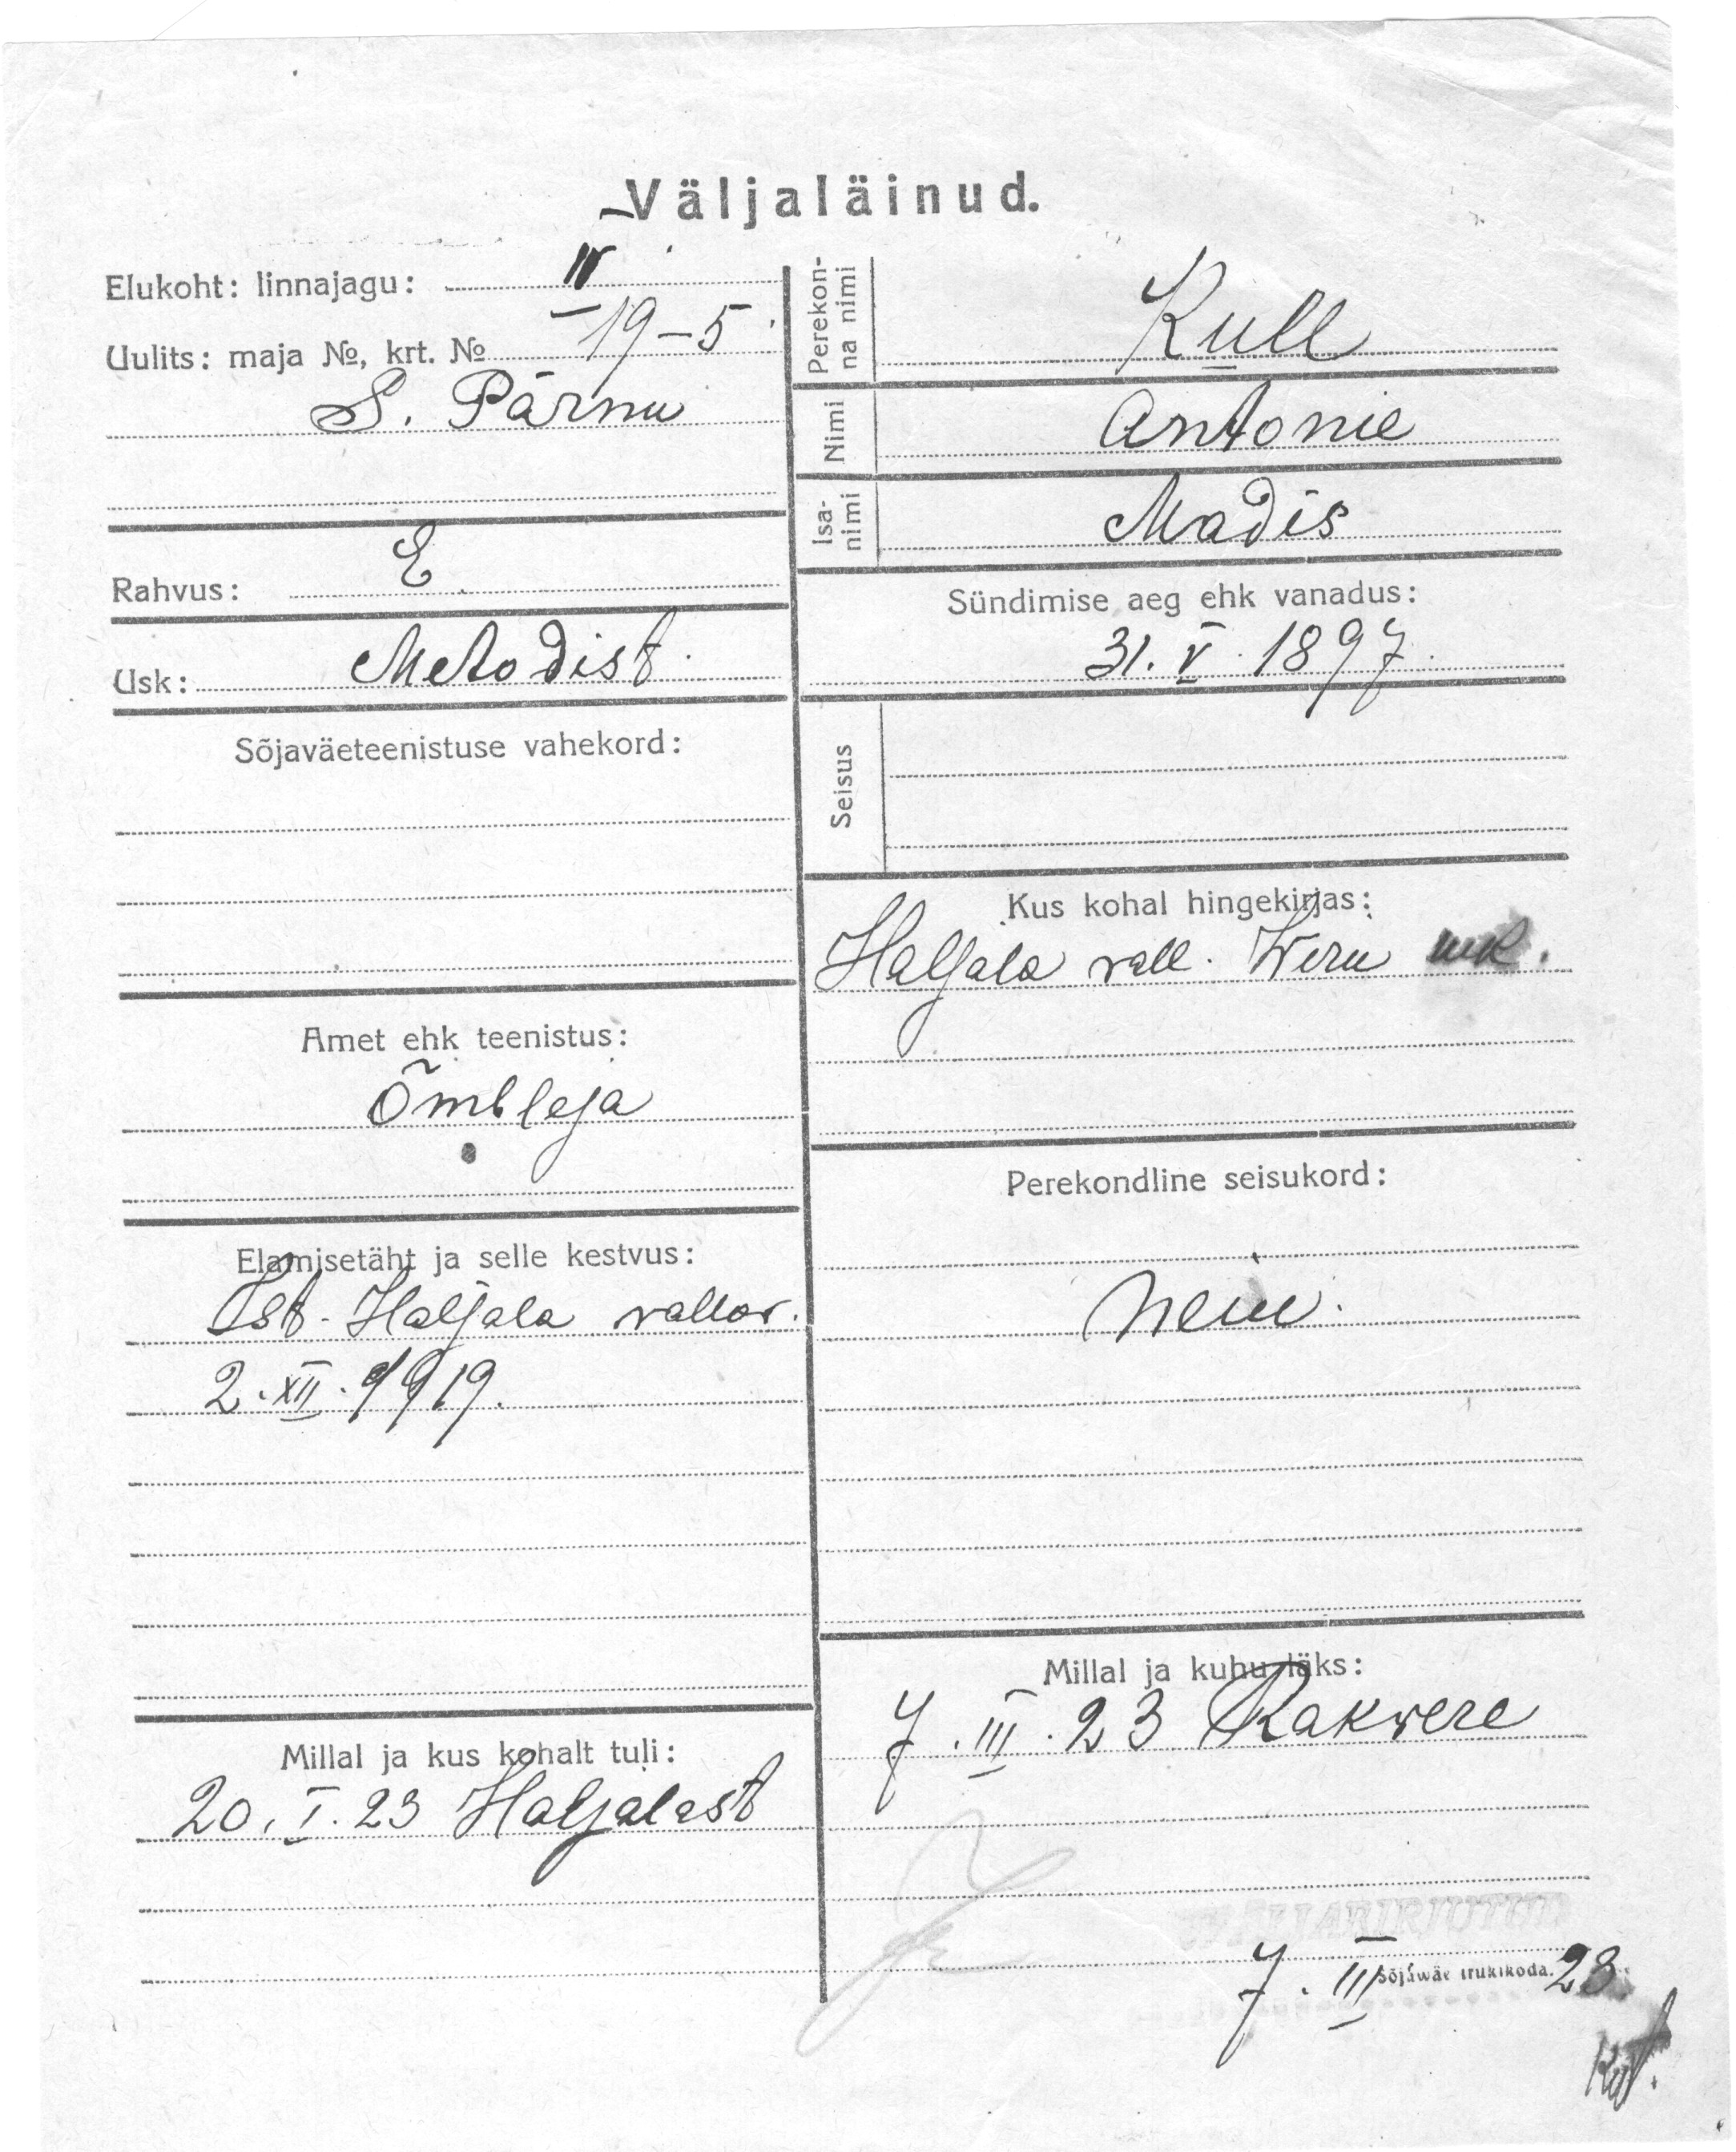 Väljaläinud.
Elukoht: linnajagu: IV
Uulits: maja №, krt. № 19-5
S. Pärnu
Rahvus: E
Usk: Metodist.
Sõjaväeteenistuse vahekord:
Amet ehk teenistus:
Õmbleja
Elamisetäht ja selle kestvus:
Ist. Haljala vallav.
2. XII. 1919.
Millal ja kus kohalt tuli:
20. I. 23 Haljalast
Perekon-
na nimi
Kull
Nimi
Antonie
Isa-
nimi
Madis
Sündimise aeg ehk vanadus:
31. V. 1897.
Seisus
Kus kohal hingekirjas:
Haljala vall. Wiru mk.
Perekondline seisukord:
Neiu.
Millal ja kuhu läks:
7. III. 23 Rakvere
VÄLJAKIRJUTUD
7. III 23.
Sõjawäe trukikoda.